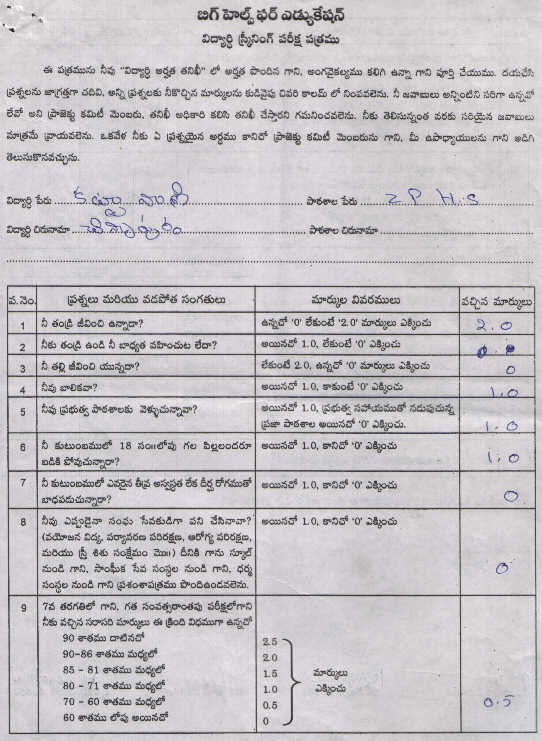 బిగ్ హెల్ప్ ఫర్ ఎడ్యుకేషన్
విద్యార్థి స్క్రీనింగ్ పరీక్ష పత్రము
ఈ పత్రమును నీవు "విద్యార్థి అర్హత తనిఖీ" లో అర్హత పొందిన గాని, అంగవైకల్యము కలిగి ఉన్నా గాని పూర్తి చేయుము. దయచేసి
ప్రశ్నలను జాగ్రత్తగా చదివి, అన్ని ప్రశ్నలకు నీకొచ్చిన మార్కులను కుడివైపు చివరి కాలమ్ లో నింపవలెను. నీ జవాబులు అన్నింటిని సరిగా ఉన్నవో
లేవో అని ప్రాజెక్టు కమిటీ మెంబరు, తనిఖీ అధికారి కలిసి తనిఖీ చేస్తారని గమనించవలెను. నీకు తెలిసున్నంత వరకు సరియైన జవాబులు
మాత్రమే వ్రాయవలెను. ఒకవేళ నీకు ఏ ప్రశ్నయైన అర్థము కానిచో ప్రాజెక్టు కమిటీ మెంబరును గాని, మీ ఉపాధ్యాయులను గాని అడిగి
తెలుసుకొనవచ్చును.
విద్యార్థి పేరు పాఠశాల పేరు Z P H.S
విద్యార్థి చిరునామా పాఠశాల చిరునామా
వ.నెం. ప్రశ్నలు మరియు వడపోత సంగతులు మార్కుల వివరములు వచ్చిన మార్కులు
1 నీ తండ్రి జీవించి ఉన్నాడా? ఉన్నచో '0' లేకుంటే '2.0' మార్కులు ఎక్కించు 2.0
2 నీకు తండ్రి ఉండి నీ బాధ్యత వహించుట లేదా? అయినచో 1.0, లేకుంటే '0' ఎక్కించు
3 నీ తల్లి జీవించి యున్నదా? లేకుంటే 2.0, ఉన్నచో '0' మార్కులు ఎక్కించు 0
4 నీవు బాలికవా? అయినచో 1.0, కాకుంటే '0' ఎక్కించు 1.0
5 నీవు ప్రభుత్వ పాఠశాలకు వెళ్ళుచున్నావా? అయినచో 1.0, ప్రభుత్వ సహాయముతో నడుపుచున్న
ప్రజా పాఠశాల అయినచో '0' ఎక్కించు. 1.0
6 నీ కుటుంబములో 18 సం॥లోపు గల పిల్లలందరూ అయినచో 1.0, కానిచో '0' ఎక్కించు 1.0
బడికి పోవుచున్నారా?
7 నీ కుటుంబములో ఎవరైన తీవ్ర అస్వస్థత లేక దీర్ఘ రోగముతో అయినచో 1.0, కానిచో '0' ఎక్కించు
బాధపడుచున్నారా? 0
8 నీవు ఎప్పుడైనా సంఘ సేవకుడిగా పని చేసినావా? అయినచో 1.0, కానిచో '0' ఎక్కించు
(వయోజన విద్య, పర్యావరణ పరిరక్షణ, ఆరోగ్య పరిరక్షణ,
మరియు స్త్రీ శిశు సంక్షేమం మొ॥) దీనికి గాను స్కూల్
నుండి గాని, సాంఘీక సేవ సంస్థల నుండి గాని, ధర్మ 0
సంస్థల నుండి గాని ప్రశంశాపత్రము పొందిఉండవలెను.
9 7వ తరగతిలో గాని, గత సంవత్సరాంతపు పరీక్షలోగాని
నీకు వచ్చిన సరాసరి మార్కులు ఈ క్రింది విధముగా ఉన్నచో
90 శాతము దాటినచో 2.5
90-86 శాతము మధ్యలో 2.0
85 - 81 శాతము మధ్యలో 1.5 మార్కులు
80 - 71 శాతము మధ్యలో 1.0 ఎక్కించు
70 - 60 శాతము మధ్యలో 0.5 0.5
60 శాతము లోపు అయినచో 0